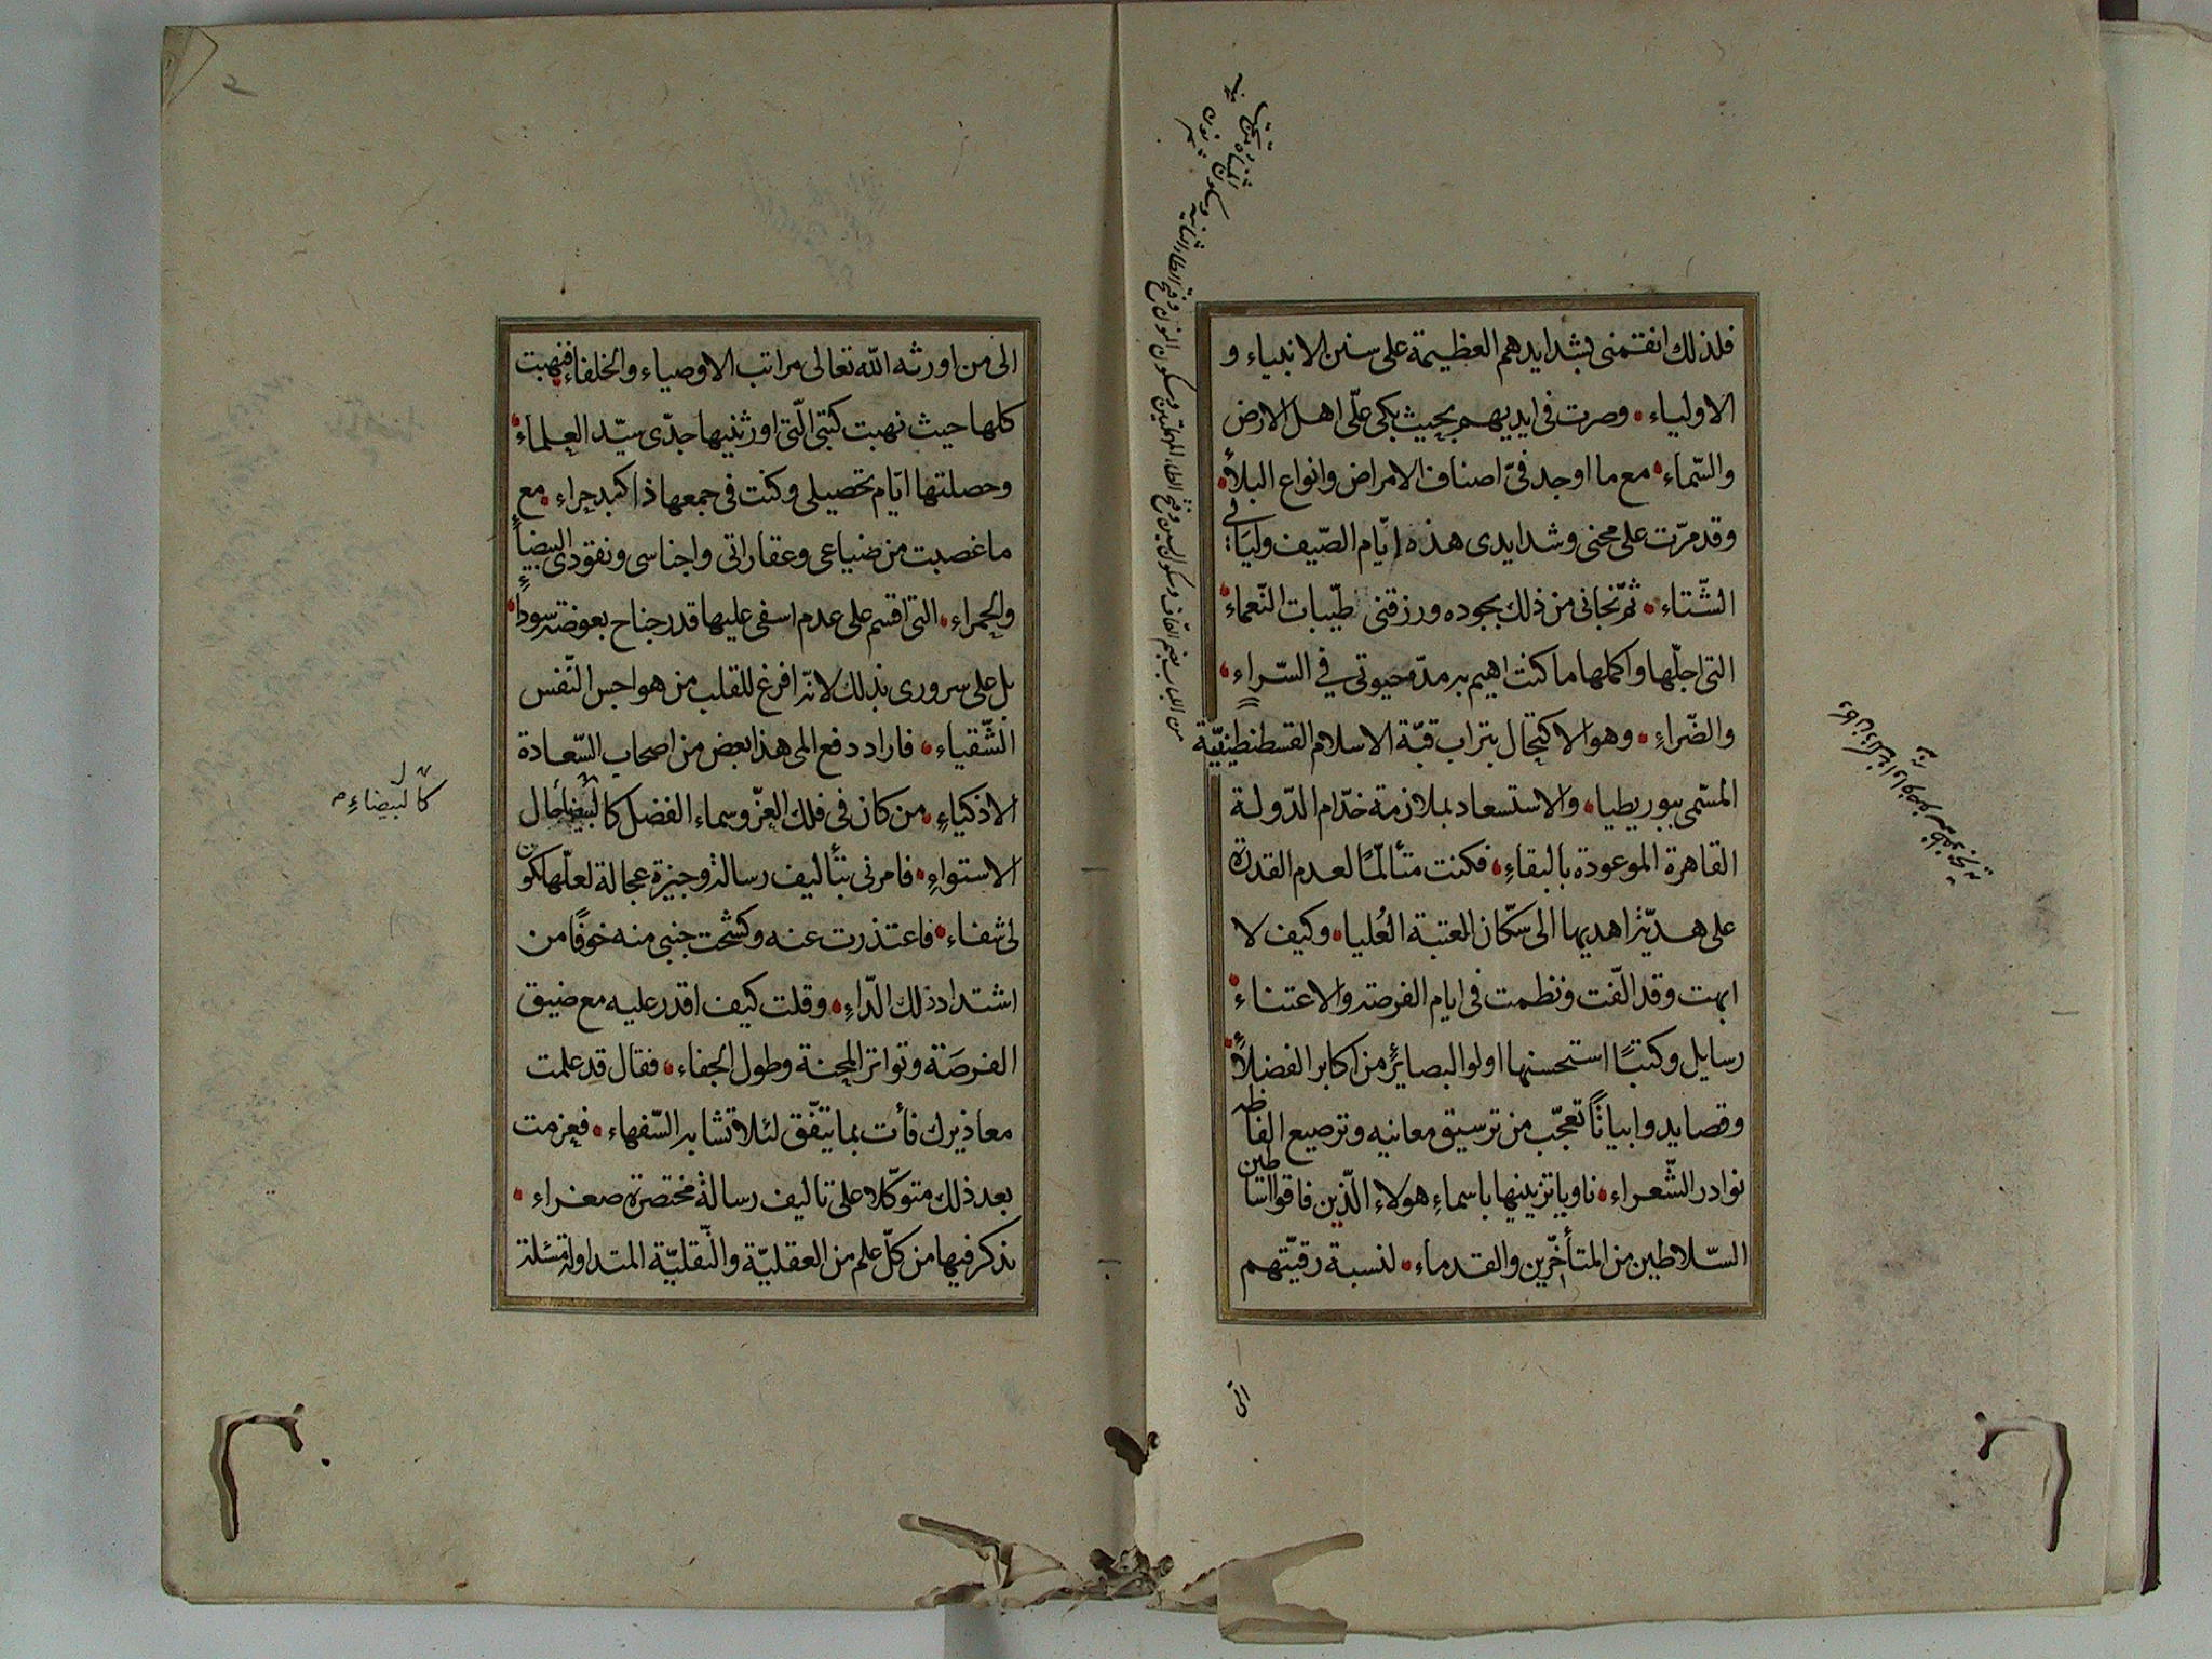 فلذلك انفتمنى بشدايدهم العظيمة على سنن الانبياء و
الاولياء • وصرت فى ايديهم بحيث بكى علّى اهل الارض
والسّماء • مع ما اوجد فىّ اصناف الامراض وانواع البلأ •
وقد مرّت على محنى وشدايدى هذه ايّام الصّيف وليَالى
الشّتاء • ثمّ نجّانى من ذلك بجوده ورزقنى طيّبات النّعماء •
التى اجلّها واكملها ما كنت اهيم به مدّة حيوتى في السّراء •
والضّراءِ • وهو الاكتحال بتراب قبّة الاسلام القسطنطينيّة
المسّمى ببوريطيا • والاستسعاد بملازمة خدّام الدّولة
القاهرة الموعودة بالبقاءِ • فكنت متألمًا لعدم القدرة
على هديّة اهديها الى سكّان العتبة العُليا • وكيف لا
ابهت وقد الّفت ونظمت فى ايام الفرصة والاعتناء •
رسايل وكتبًا استحسنها اولوا البصائر من اكابر الفضلاً •
وقصايد وابياتًا تعجّب من ترسيق معانيه وترصيع الفاظه
نوادر الشّعراء • ناويا تزيينها باسماءِ هولاء الّذين فاقوا اساطين
السّلاطين من المتأخّرين والقدماء • لنسبة رقيّتهم
الى
الى من اورثه اللّه تعالى مراتب الاوصياء والخلفاء فنهبت
كلها حيث نهبت كتبى الّتى اورثنيها جدّى سيّد العلماء •
وحصلتها ايّام تحصيلى وكنت فى جمعها ذا كبد حراء • مع
ما غصبت من ضياعى وعقاراتى واجناسى ونقودى البيضاءِ
والحمراء • التى اقسم على عدم اسفى عليها قدر جناح بعوضة سوداءِ •
بل على سرورى بذلك لانه افرغ للقلب من هواجس النّفس
الشّقياء • فاراد دفع المى هذا بعض من اصحاب السّعادة
الاذكياءِ • من كان فى فلك العزّ وسماء الفضل كالبيضاء حال
الاستواءِ • فامرنى بتأليف رسالة وجيزة عجالة لعلّها تكون
لى شفاء • فاعتذرت عنه وكشحت جنبى منه خوفًا من
اشتداد ذلك الدّاءِ • وقلت كيف اقدر عليه مع ضيق
الفرصَة وتواتر المحنة وطول الجفاء • فقال قد علمت
معاذيرك فأت بما يتّفق لئلا تشابه السّفهاء • فعزمت
بعد ذلك متوكّلا على تاليف رسالة مختصرة صغراء •
نذكر فيها من كلّ علم من العقليّة والنّقليّة المتداولة مسئلة
كالبيضاءِ م